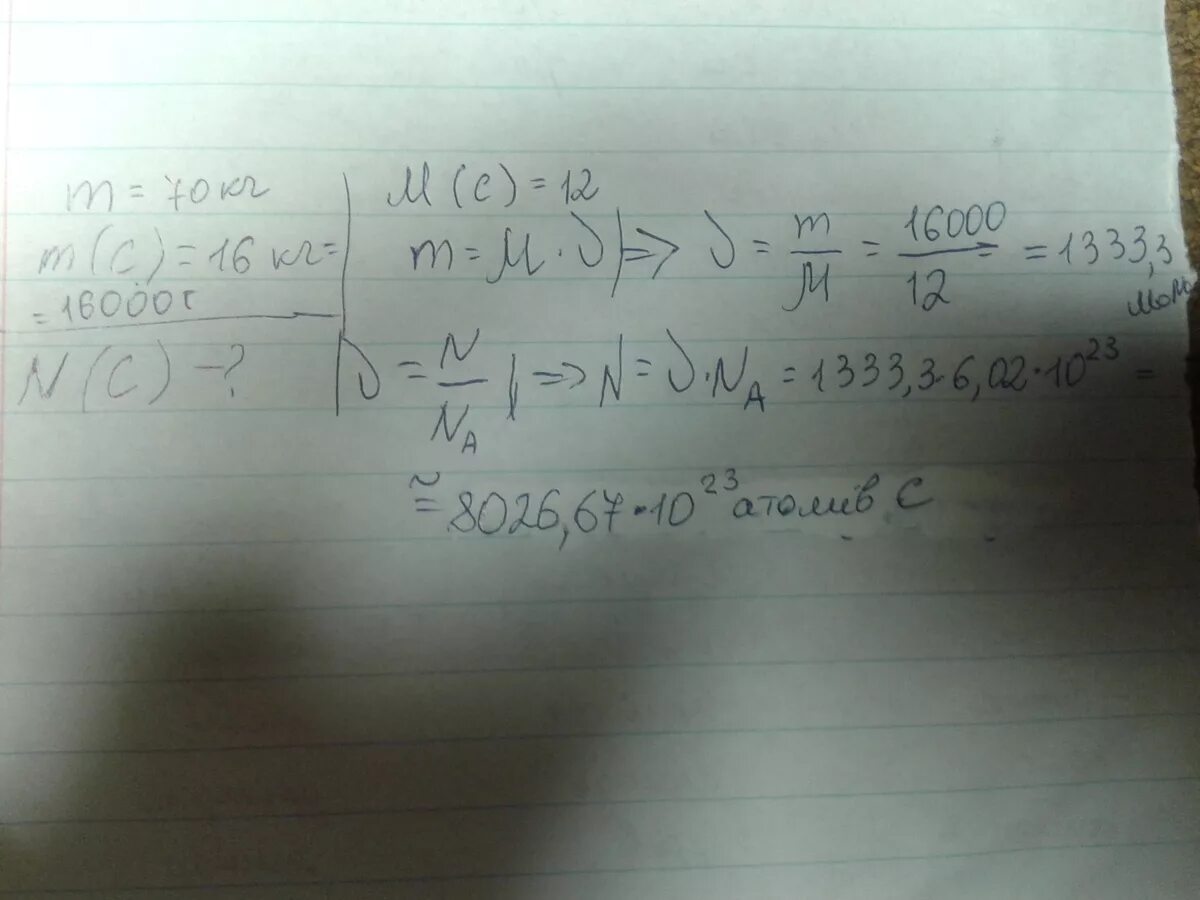 m = 70 кг
m(C) = 16 кг =
= 16000 г
N(C) – ?
M(C) = 12
m = M · ν | => ν = m/M = 16000/12 = 1333,3 моль
ν = N/N_A | => N = ν · N_A = 1333,3 · 6,02 · 10^23 =
≅ 8026,67 · 10^23 атомів C